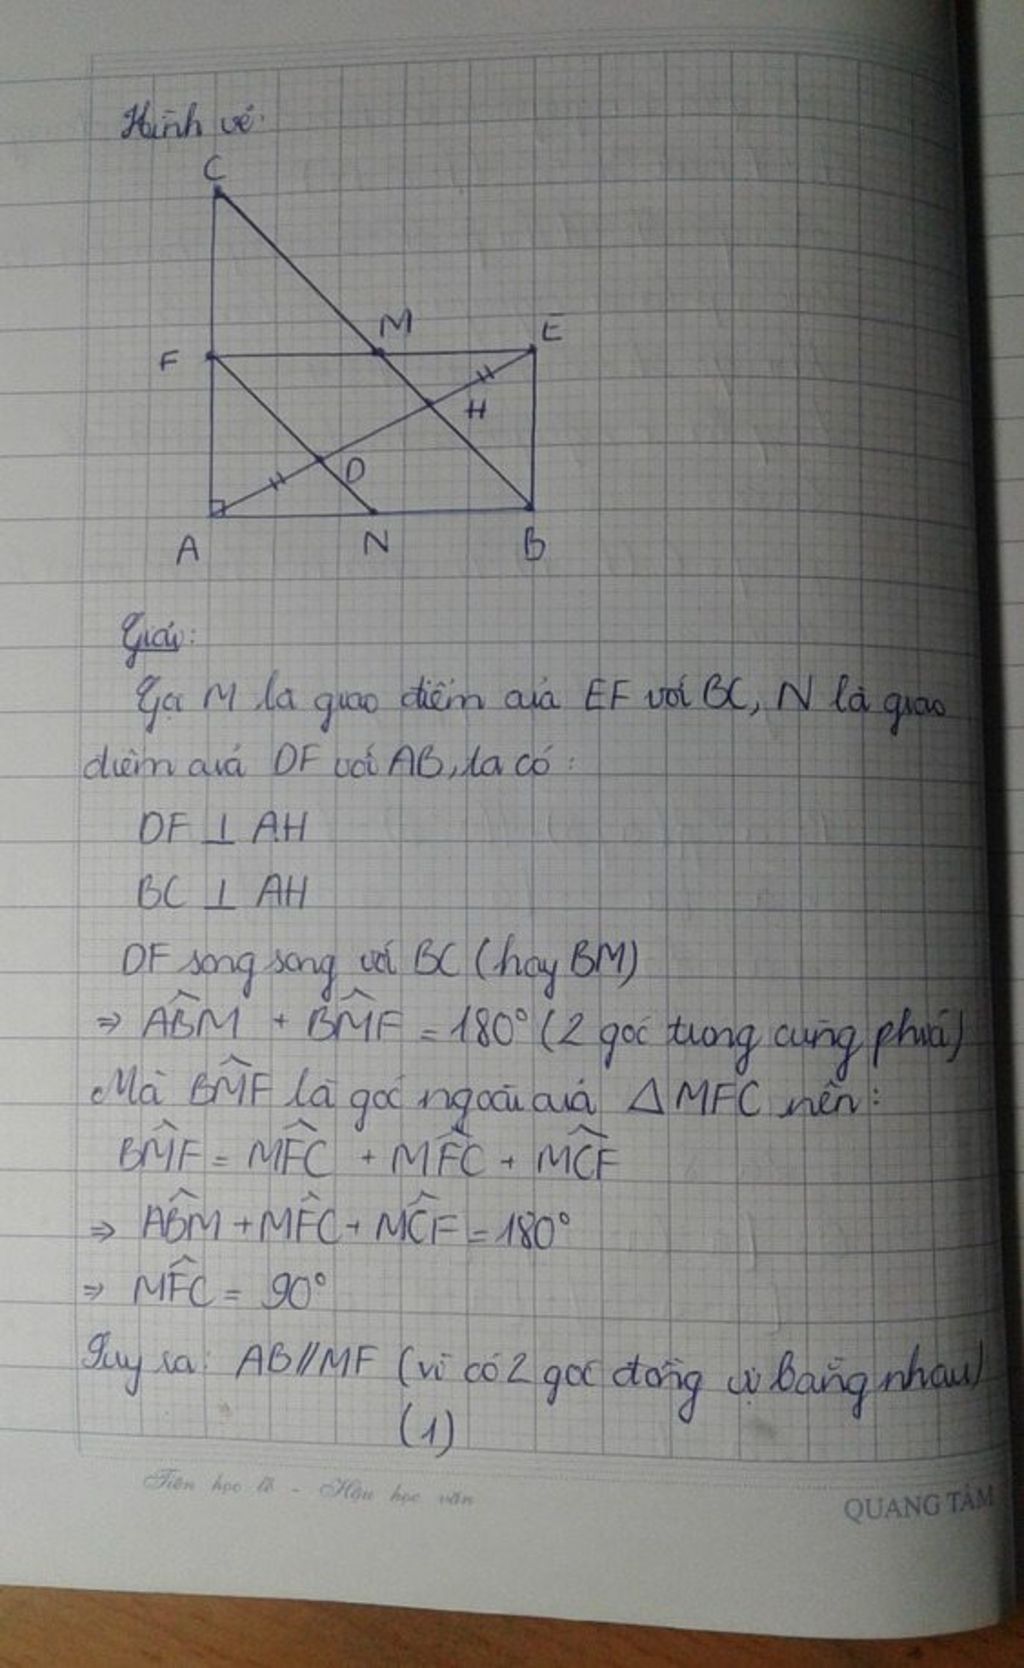 Hình vẽ:
C
M
E
F
H
D
A
N
B
Giải:
Gọi M là giao điểm của EF với BC, N là giao
điểm của DF với AB, ta có:
DF ⊥ AH
BC ⊥ AH
DF song song với BC (hay BM)
⇒ ABM̂ + BMF̂ = 180° (2 góc trong cùng phía)
Mà BMF̂ là góc ngoài của Δ MFC nên:
BMF̂ = MFĈ + MFĈ + MCF̂
⇒ ABM̂ + MFĈ + MCF̂ = 180°
⇒ MFĈ = 90°
Suy ra: AB//MF (vì có 2 góc đồng vị bằng nhau)
(1)
Tiên học lễ - Hậu học văn
QUANG TÂM